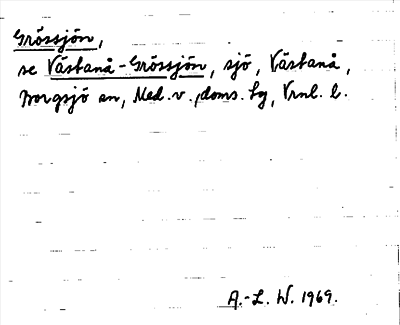 Grössjön,
se Västanå-Grössjön, sjö, Västanå,
Borgsjö sn, Med. v. doms. tg, Vrnl. l.
A.-L. W. 1969.